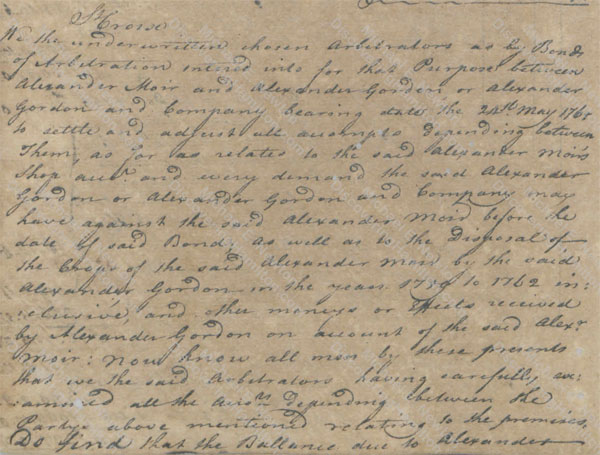 St Croix
We the underwritten chosen Arbitrators as by Bonds
of Arbitration entred into for that Purpose between
Alexander Moir and Alexander Gordon or Alexander
Gordon and Company bearing date the 24st. May 176
to settle and adjust all accompts depending between
Them, as far as relates to the said Alexander Moirs
Shop acct. and every demand the said Alexander
Gordon or Alexander Gordon and Company may
have against the said Alexander Moir before the
date of said Bond, as well as to the Disposal of
the Crops of the said Alexander Moir by the said
Alexander Gordon in the years 1759 to 1762 in:
:clusive, and other moneys or Effects received
by Alexander Gordon on account of the said Alexr.
Moir: Now know all men by these presents
that we the said Arbitrators having carefully ex:
:amined all the Accots. Depending between the
Partys above mentioned relating to the premises,
Do find that the Ballance due to Alexander